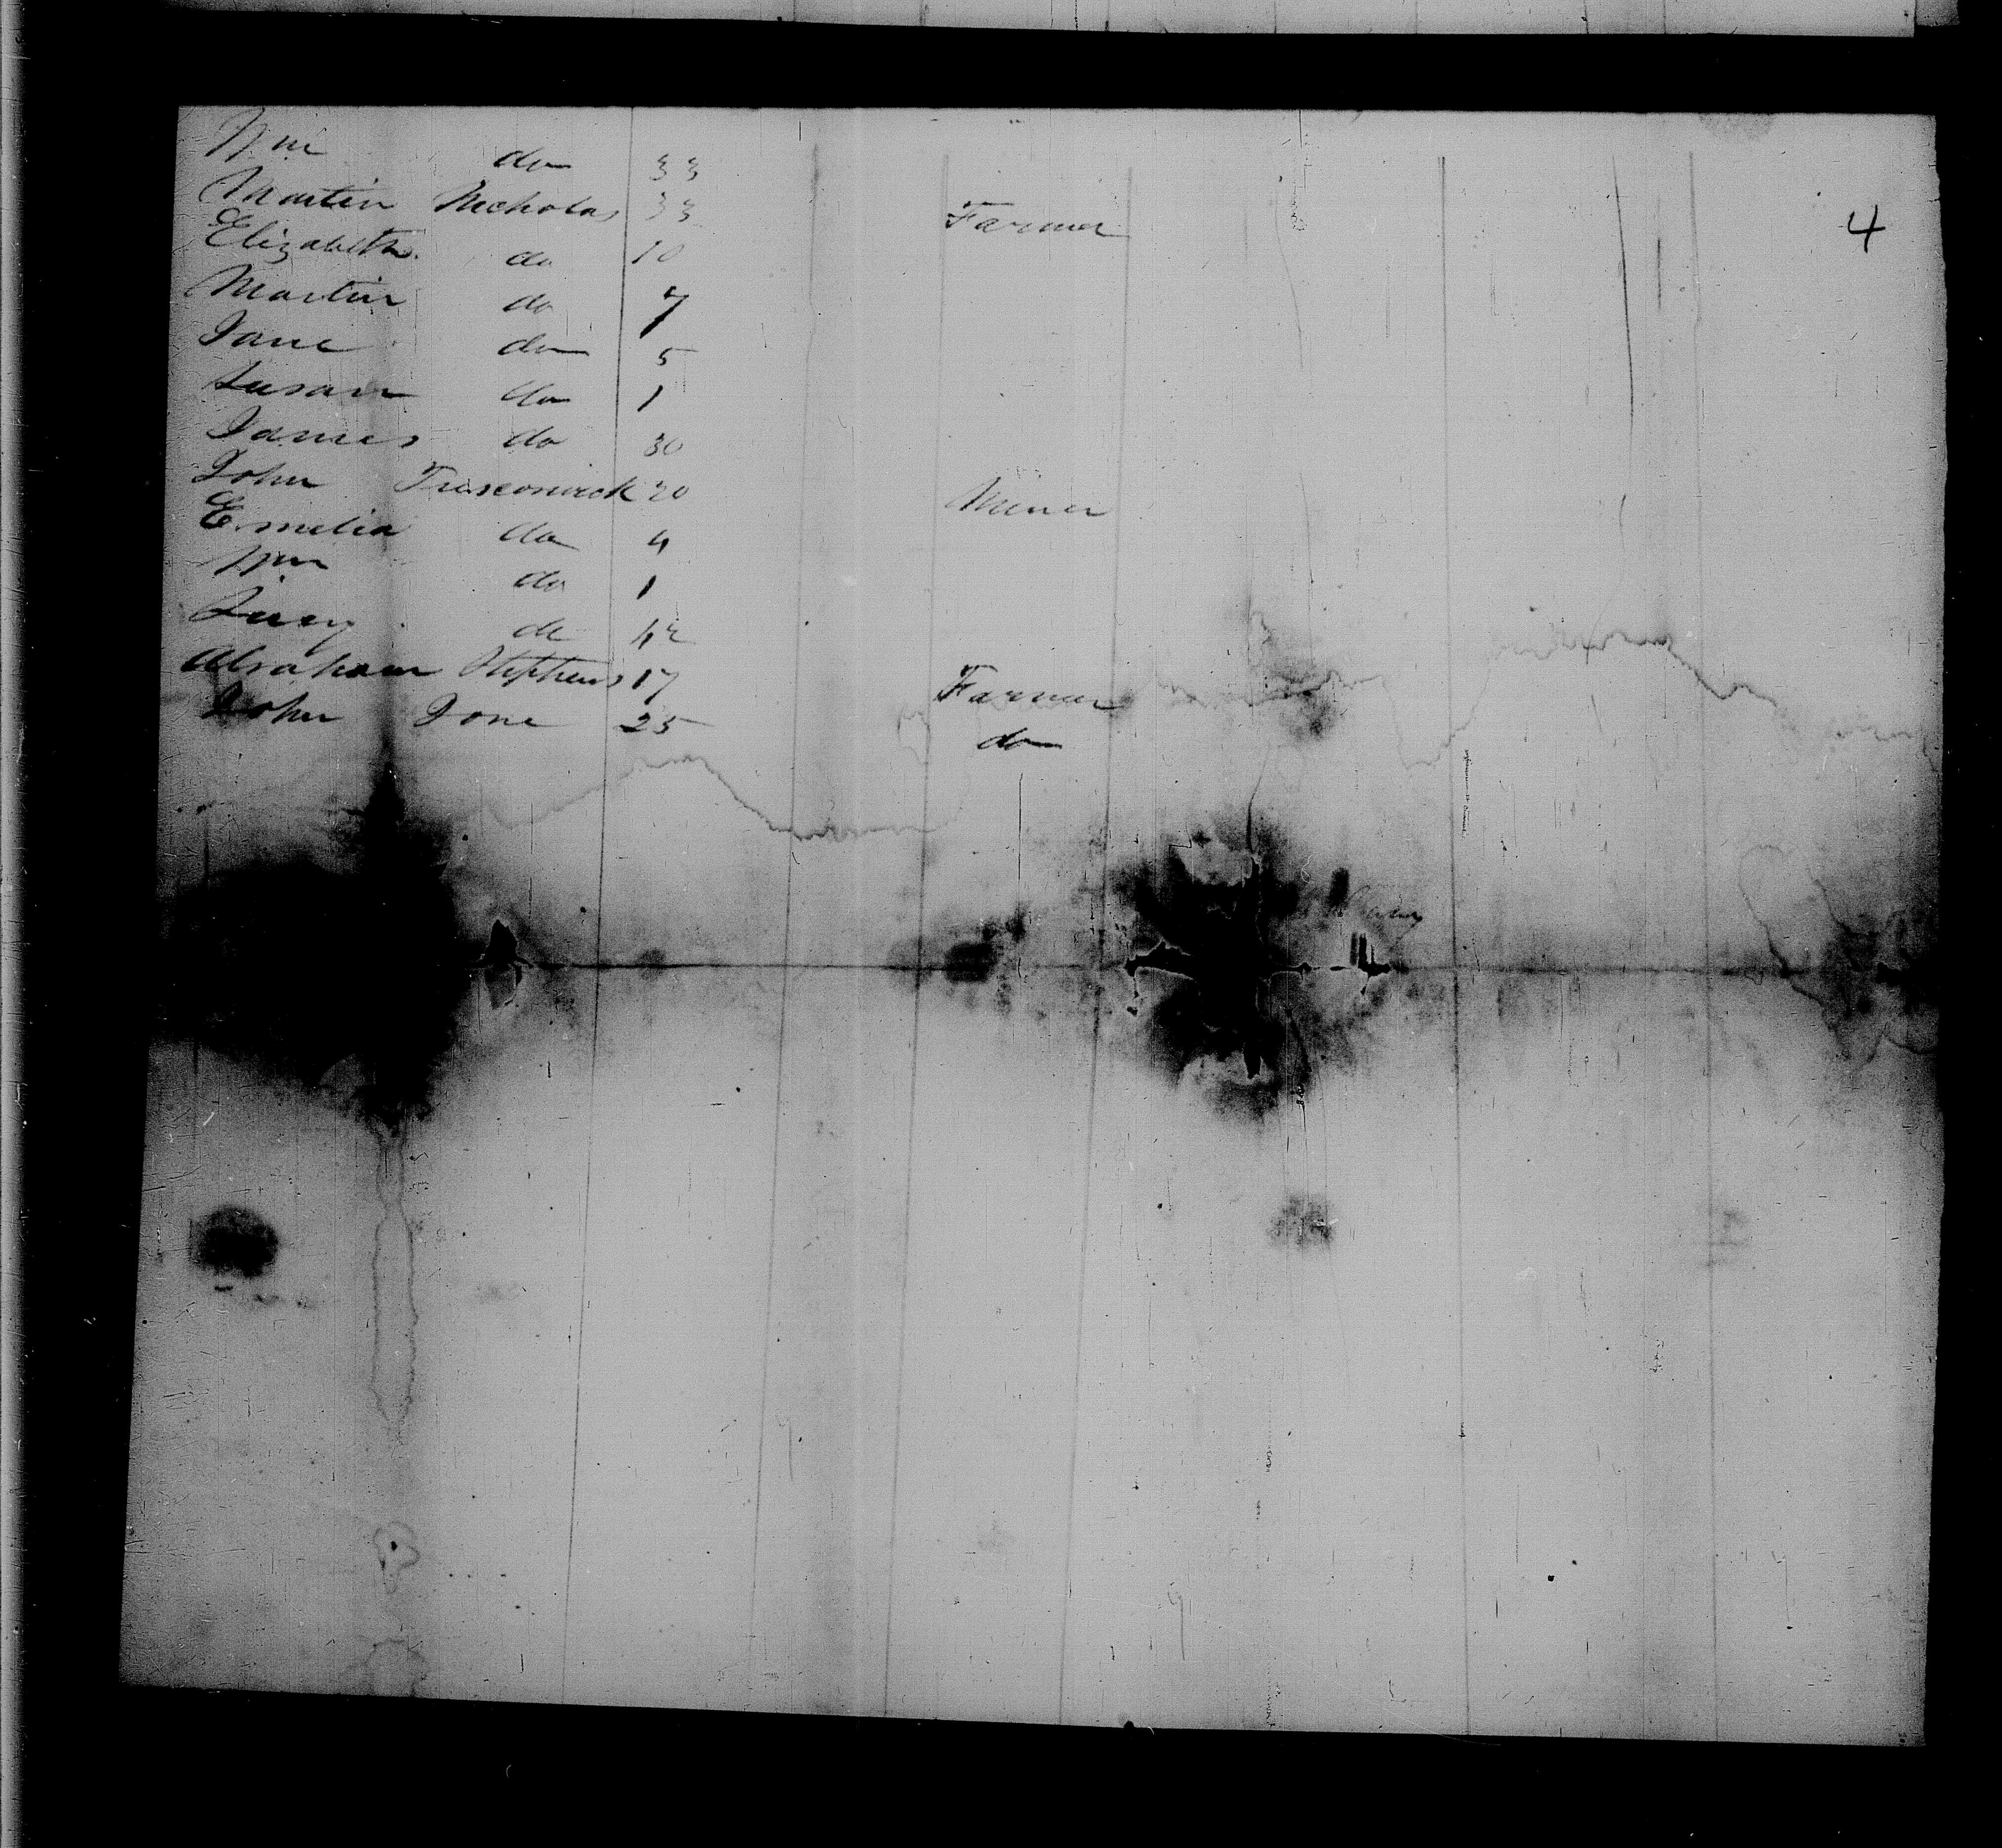 Wm do 33
Martin Nicholas 33 Farmer
4
Elizabeth do 10
Martin do 7
Jane do 5
Susan do 1
James do 30
John 20 Miner
Emelia do 4
Wm do 1
Lucy do 42
Abraham Stephens 17 Farmer
John Jone 25 do